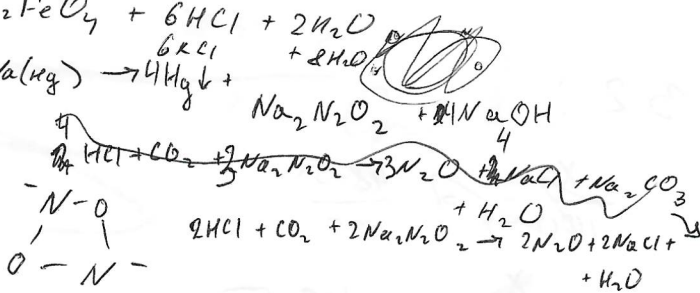 ₂FeO₄ + 6HCl + 2H₂O
6KCl + 8H₂O
a(Hg) → 4Hg↓ +
Na₂N₂O₂ + 4NaOH
4 HCl + CO₂ + 3Na₂N₂O₂ → 3N₂O + 4NaCl + Na₂CO₃
+ H₂O
2HCl + CO₂ + 2Na₂N₂O₂ → 2N₂O + 2NaCl +
+ H₂O
⁻N - O
O - N⁻